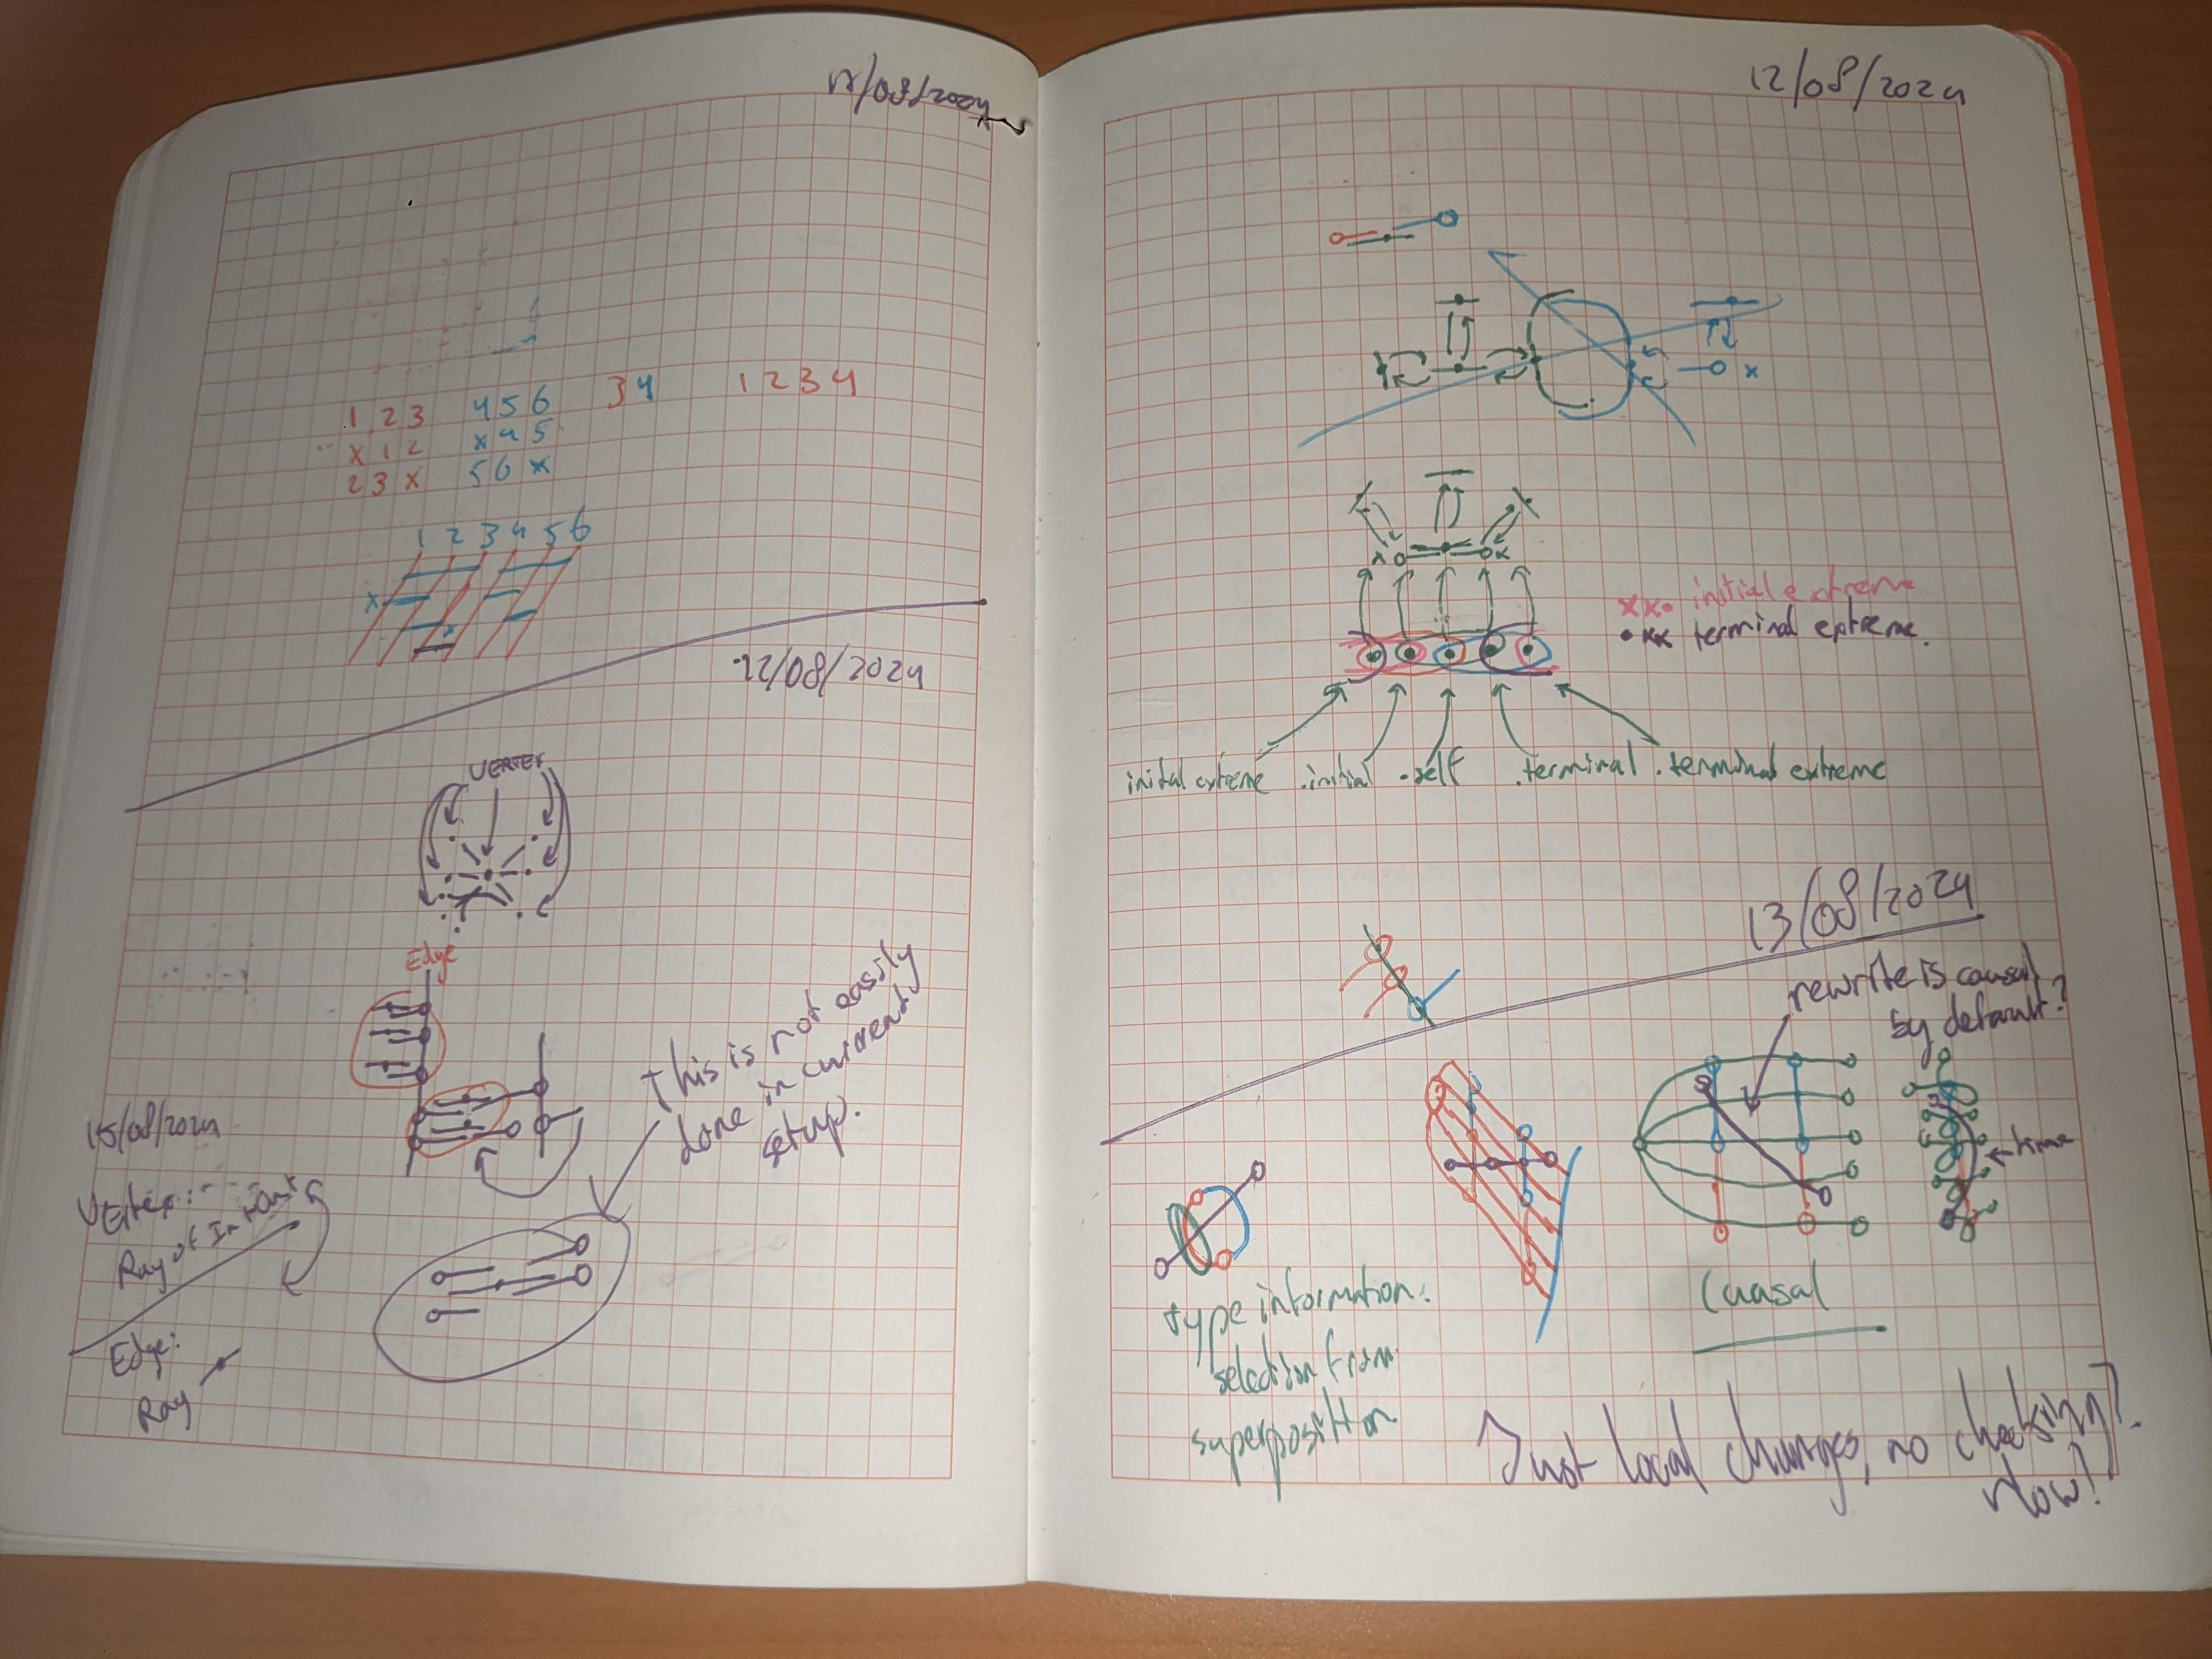 12/08/2024
1 2 3 4 5 6 3 4 1 2 3 4
x 1 2 x 4 5
2 3 x 5 6 x
1 2 3 4 5 6
x
12/08/2024
VERTEX
Edge
This is not easily
done in current
setup.
15/08/2024
Vertex:
Ray of
Edge:
Ray
12/08/2024
x
x x
xx• initial extreme
•xx terminal extreme.
inital extreme .initial .self .terminal .terminal extreme
13/08/2024
rewrite is causal
by default?
time
type information:
selection from
superposition
Cuasal
Just local changes, no checking?
How?